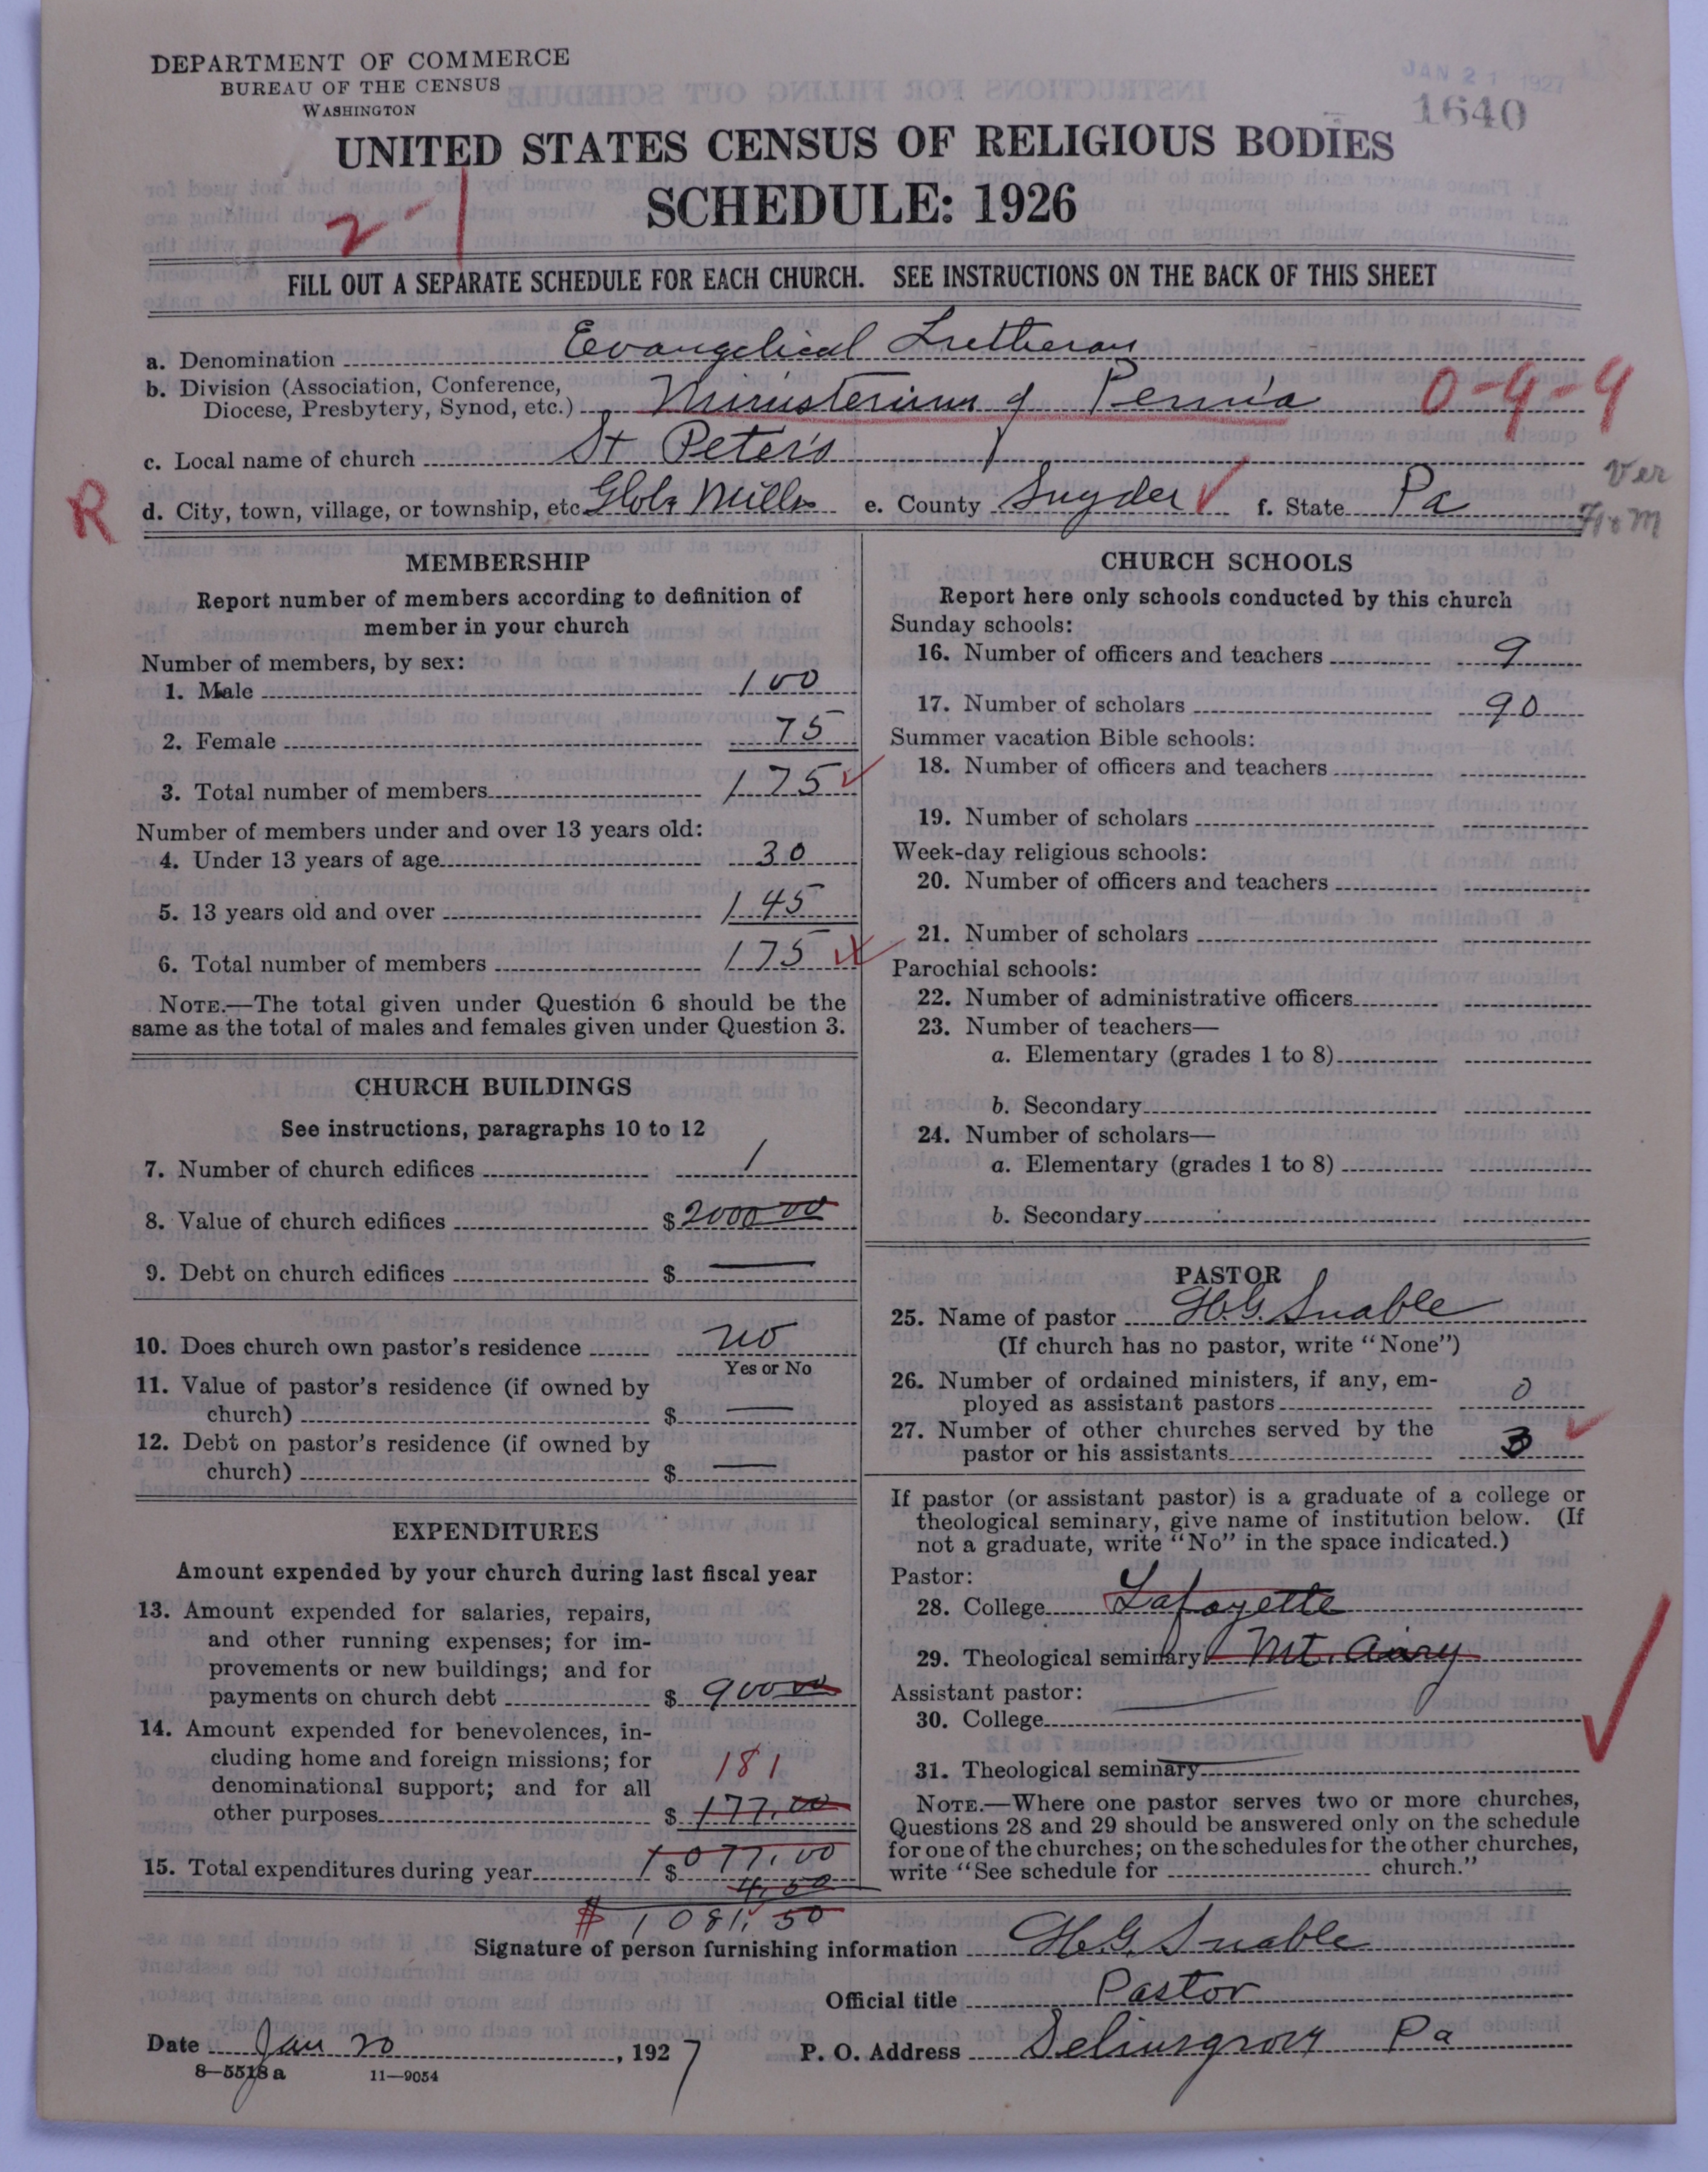 DEPARTMENT OF COMMERCE
BUREAU OF THE CENSUS
WASHINGTON
JAN 21 1927
1640
UNITED STATES CENSUS OF RELIGIOUS BODIES
SCHEDULE: 1926
2-1
FILL OUT A SEPARATE SCHEDULE FOR EACH CHURCH. SEE INSTRUCTIONS ON THE BACK OF THIS SHEET
a. Denomination Evangelical Lutheran
b. Division (Association, Conference,
Diocese, Presbytery, Synod, etc.) Ministerium of Penn'a 0-9-4
c. Local name of church St Peter's
Ver
R
d. City, town, village, or township, etc. Globe Mills e. County Snyder f. State Pa
MEMBERSHIP
Report number of members according to definition of
member in your church
Number of members, by sex:
1. Male 100
2. Female 75
3. Total number of members 175
Number of members under and over 13 years old:
4. Under 13 years of age 30
5. 13 years old and over 145
6. Total number of members 175
NOTE.—The total given under Question 6 should be the
same as the total of males and females given under Question 3.
CHURCH BUILDINGS
See instructions, paragraphs 10 to 12
7. Number of church edifices 1
8. Value of church edifices $2000 00
9. Debt on church edifices $ —
10. Does church own pastor's residence no
Yes or No
11. Value of pastor's residence (if owned by
church) $ —
12. Debt on pastor's residence (if owned by
church) $ —
EXPENDITURES
Amount expended by your church during last fiscal year
13. Amount expended for salaries, repairs,
and other running expenses; for im-
provements or new buildings; and for
payments on church debt $ 900 00
14. Amount expended for benevolences, in-
cluding home and foreign missions; for
denominational support; and for all
181
other purposes $ 177.00
15. Total expenditures during year $ 1077.00
4.50
$ 1081.50
CHURCH SCHOOLS
Report here only schools conducted by this church
Sunday schools:
16. Number of officers and teachers 9
17. Number of scholars 90
Summer vacation Bible schools:
18. Number of officers and teachers
19. Number of scholars
Week-day religious schools:
20. Number of officers and teachers
21. Number of scholars
Parochial schools:
22. Number of administrative officers
23. Number of teachers—
a. Elementary (grades 1 to 8)
b. Secondary
24. Number of scholars—
a. Elementary (grades 1 to 8)
b. Secondary
PASTOR
25. Name of pastor H.G. Snable
(If church has no pastor, write "None")
26. Number of ordained ministers, if any, em-
ployed as assistant pastors 0
27. Number of other churches served by the
pastor or his assistants 3
If pastor (or assistant pastor) is a graduate of a college or
theological seminary, give name of institution below. (If
not a graduate, write "No" in the space indicated.)
Pastor:
28. College Lafayette
29. Theological seminary Mt. Airy
Assistant pastor:
30. College
31. Theological seminary
NOTE.—Where one pastor serves two or more churches,
Questions 28 and 29 should be answered only on the schedule
for one of the churches; on the schedules for the other churches,
write "See schedule for church."
Signature of person furnishing information H.G. Snable
Official title Pastor
Date Jan 20, 1927 P. O. Address Selinsgrove Pa
8—5518a 11—9054